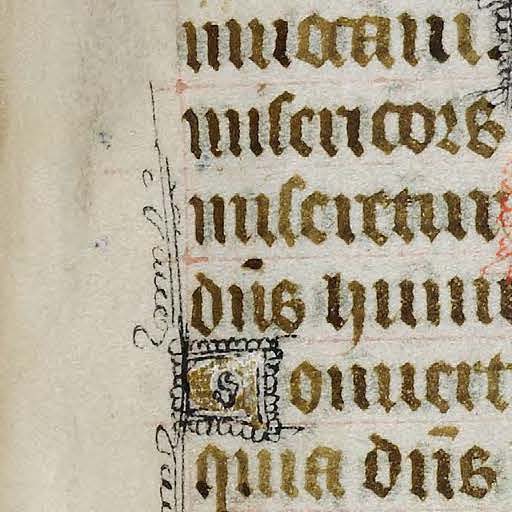 inuocaui.
misericors
miseretur
dn̄s humi
Conuert
quia dn̄s